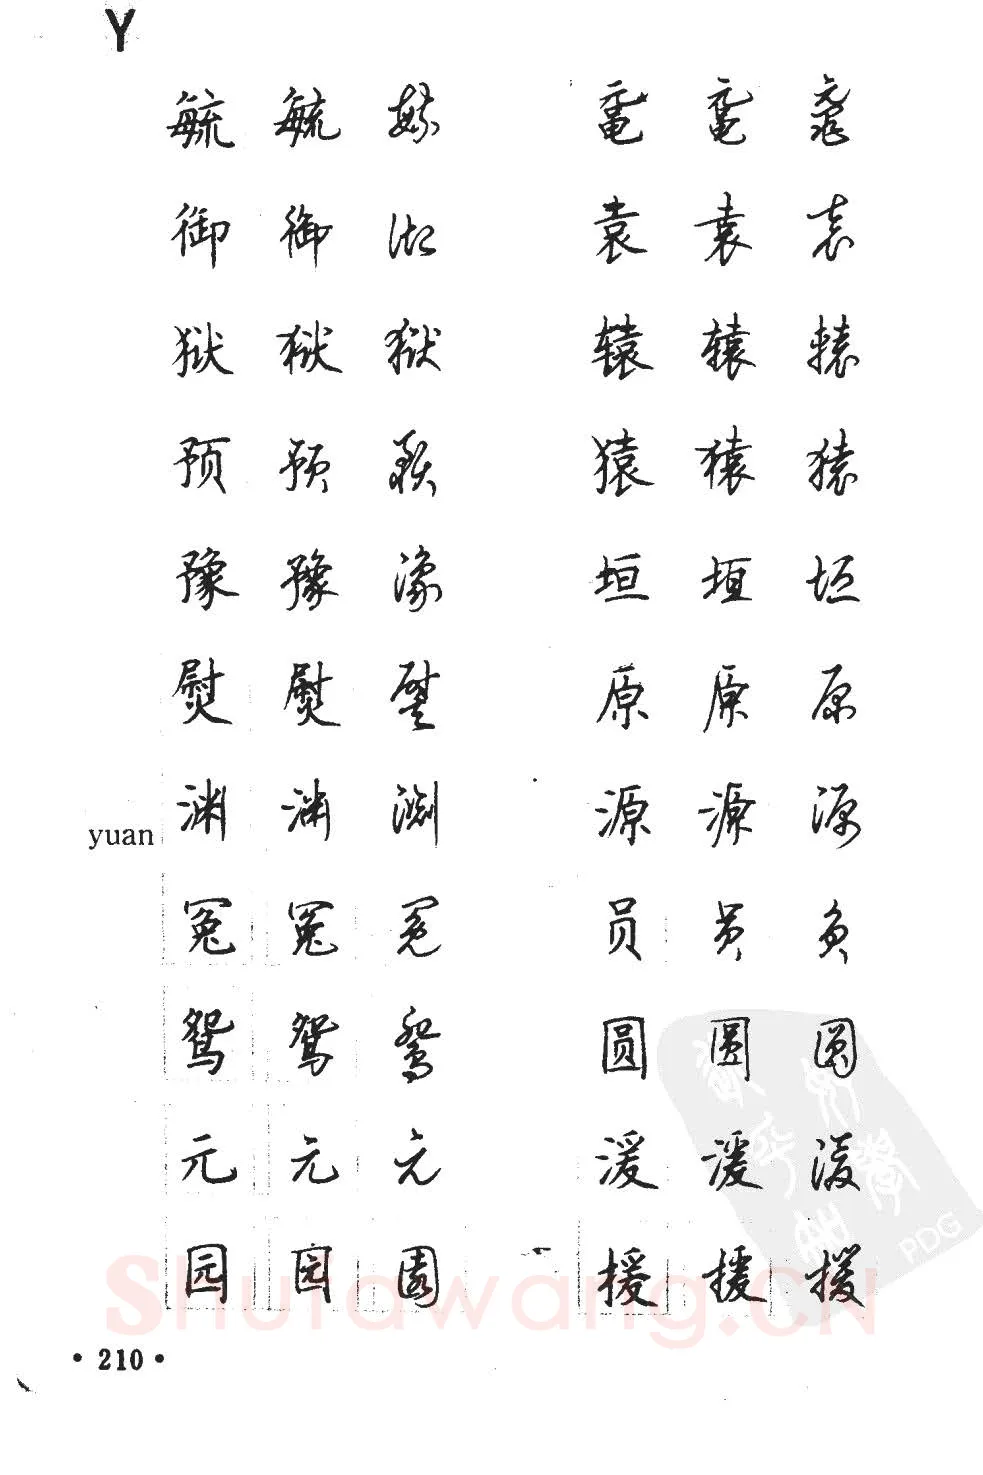 Y
毓 毓 毓 鼋 鼋 鼋
御 御 御 袁 袁 袁
狱 狱 狱 辕 辕 辕
预 预 预 猿 猿 猿
豫 豫 豫 垣 垣 垣
熨 熨 熨 原 原 原
yuan 渊 渊 渊 源 源 源
冤 冤 冤 员 员 员
鸳 鸳 鸳 圆 圆 圆
元 元 元 湲 湲 湲
园 园 園 援 援 援
PDG
Shufawang.CN
• 210 •